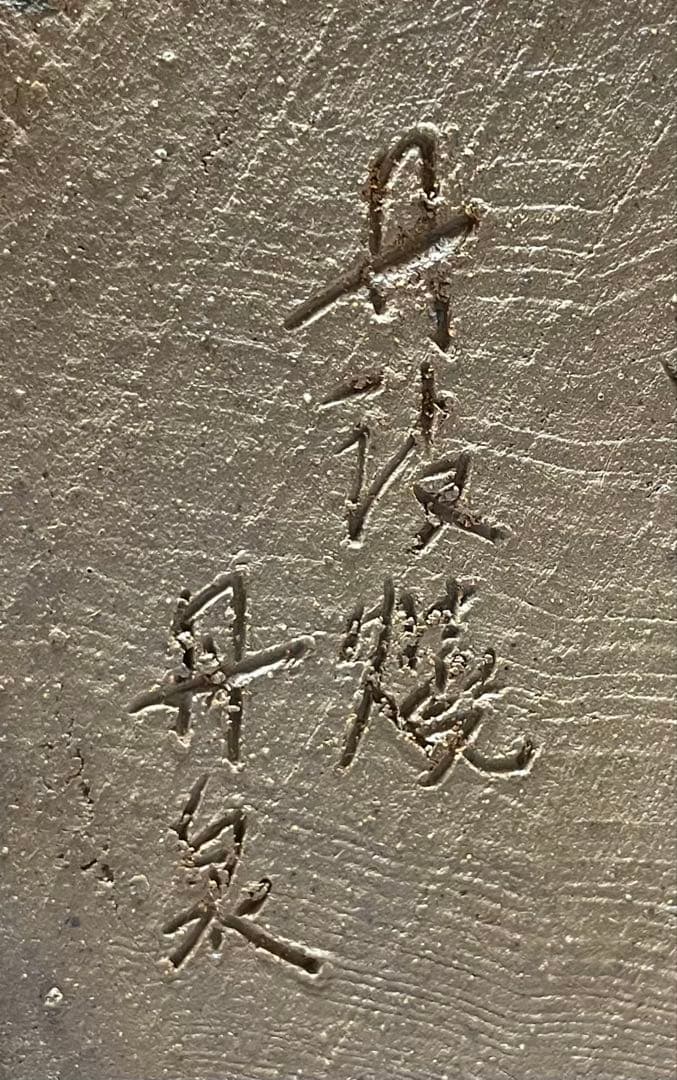 丹波燒
丹泉